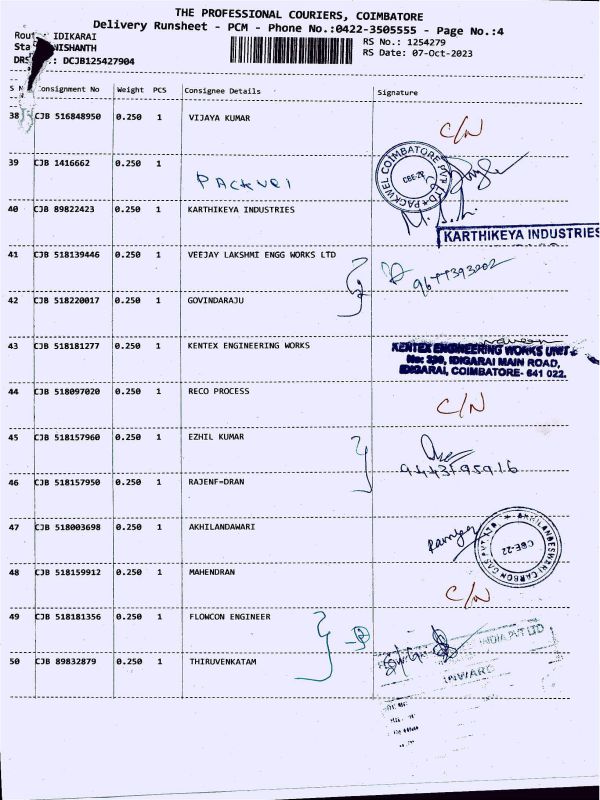 THE PROFESSIONAL COURIERS, COIMBATORE
Delivery Runsheet - PCM - Phone No.:0422-3505555 - Page No.:4
IDIKARAI
RS No.: 1254279
NISHANTH
RS Date: 07-Oct-2023
DCJB125427904
Consignment No Weight PCS Consignee Details Signature
38 CJB 516848950 0.250 1 VIJAYA KUMAR
C/N
39 CJB 1416662 0.250 1
PACKVEL
PACKWEL COIMBATORE PVT LTD
CBE-22
40 CJB 89822423 0.250 1 KARTHIKEYA INDUSTRIES
KARTHIKEYA INDUSTRIES
41 CJB 518139446 0.250 1 VEEJAY LAKSHMI ENGG WORKS LTD
42 CJB 518220017 0.250 1 GOVINDARAJU
43 CJB 518181277 0.250 1 KENTEX ENGINEERING WORKS
KENTEX ENGINEERING WORKS UNIT
IDIGARAI MAIN ROAD,
IDIGARAI, COIMBATORE- 641 022.
44 CJB 518097020 0.250 1 RECO PROCESS
C/N
45 CJB 518157960 0.250 1 EZHIL KUMAR
46 CJB 518157950 0.250 1 RAJENF=DRAN
47 CJB 518003698 0.250 1 AKHILANDAWARI
AKHILANDESWARI CARBON GAS PVT LTD
CBE-22
48 CJB 518159912 0.250 1 MAHENDRAN
C/N
49 CJB 518181356 0.250 1 FLOWCON ENGINEER
INDIA PVT LTD
50 CJB 89832879 0.250 1 THIRUVENKATAM
INWARD